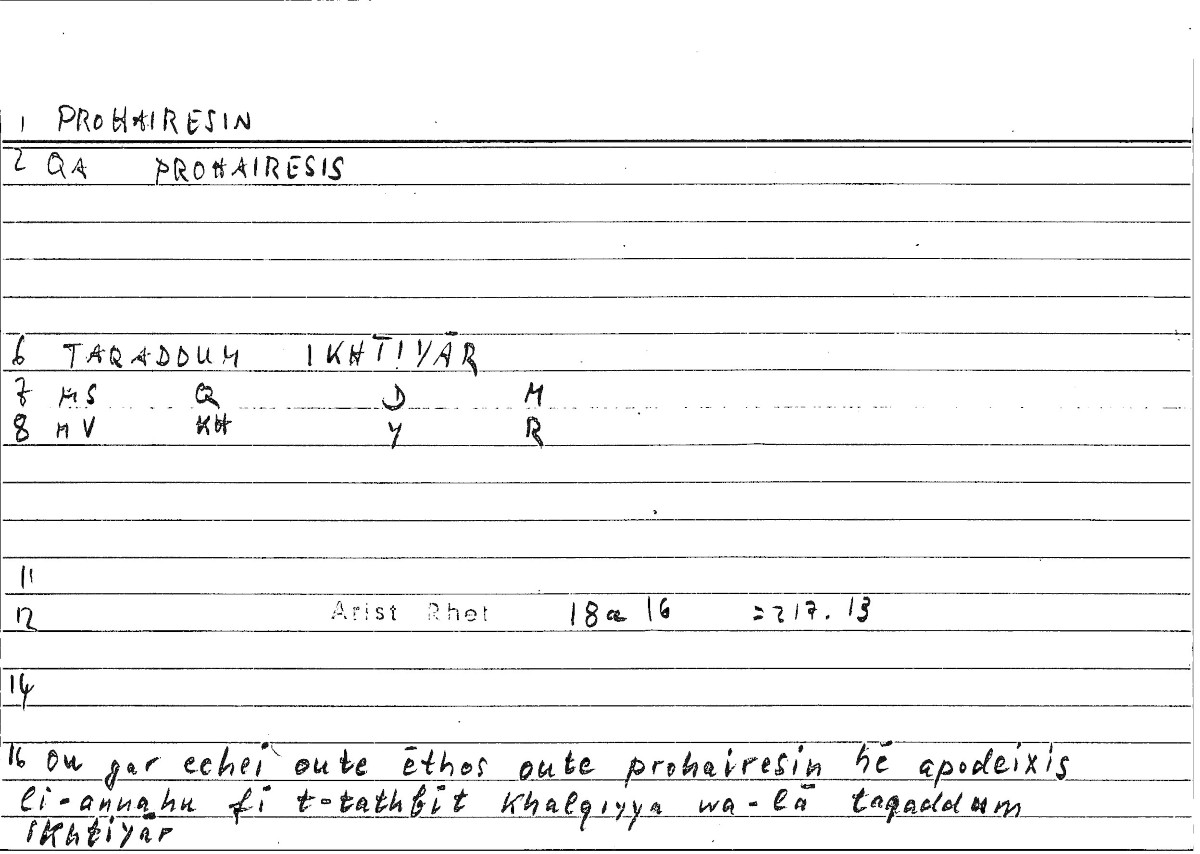 1 PROHAIRESIN
2 QA PROHAIRESIS
6 TAQADDUM IKHTIYĀR
7 MS Q D M
8 MV KH Y R
11
12 Arist Rhet 18a 16 =217.13
14
16 Ou gar echei oute ēthos oute prohairesin hē apodeixis
li-annahu fī t-tathbīt khalqiyya wa-lā taqaddum
ikhtiyār